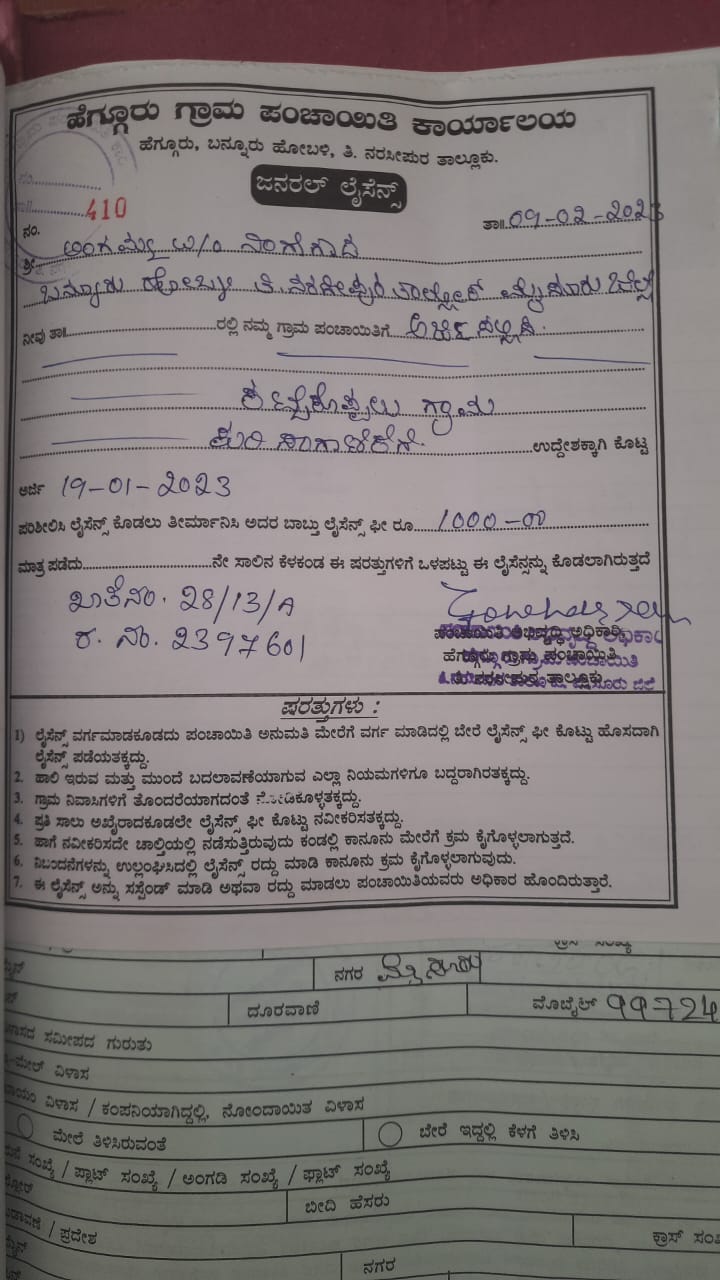 ಹೆಗ್ಗೂರು ಗ್ರಾಮ ಪಂಚಾಯಿತಿ ಕಾರ್ಯಾಲಯ
ಹೆಗ್ಗೂರು, ಬನ್ನೂರು ಹೋಬಳಿ, ತಿ. ನರಸೀಪುರ ತಾಲ್ಲೂಕು.
ಜನರಲ್ ಲೈಸೆನ್ಸ್
ನಂ. 410 ತಾ॥ 09-02-2023
ಶ್ರೀ W/o
ಬನ್ನೂರು ಹೋಬಳಿ ತಿ. ನರಸೀಪುರ ತಾಲ್ಲೋಕ್ ಮೈಸೂರು ಜಿಲ್ಲೆ
ನೀವು ತಾ॥ ರಲ್ಲಿ ನಮ್ಮ ಗ್ರಾಮ ಪಂಚಾಯಿತಿಗೆ
ಗ್ರಾಮ
ಕುರಿ ಸಾಗಾಣಿಕೆಗೆ ಉದ್ದೇಶಕ್ಕಾಗಿ ಕೊಟ್ಟ
ಅರ್ಜಿ 19-01-2023
ಪರಿಶೀಲಿಸಿ ಲೈಸೆನ್ಸ್ ಕೊಡಲು ತೀರ್ಮಾನಿಸಿ ಅದರ ಬಾಬ್ತು ಲೈಸೆನ್ಸ್ ಫೀ ರೂ 1000-00
ಮಾತ್ರ ಪಡೆದು ನೇ ಸಾಲಿನ ಕೆಳಕಂಡ ಈ ಷರತ್ತುಗಳಿಗೆ ಒಳಪಟ್ಟು ಈ ಲೈಸೆನ್ಸನ್ನು ಕೊಡಲಾಗಿರುತ್ತದೆ
ಖಾತೆ ನಂ. 28/13/A
ರ. ನಂ. 2397601
ಪಂಚಾಯಿತಿ ಅಭಿವೃದ್ಧಿ ಅಧಿಕಾರಿ
ಹೆಗ್ಗೂರು ಗ್ರಾಮ ಪಂಚಾಯಿತಿ
ತಿ. ನರಸೀಪುರ ತಾಲ್ಲೂಕು
ಷರತ್ತುಗಳು :
1) ಲೈಸೆನ್ಸ್ ವರ್ಗಮಾಡಕೂಡದು ಪಂಚಾಯಿತಿ ಅನುಮತಿ ಮೇರೆಗೆ ವರ್ಗ ಮಾಡಿದಲ್ಲಿ ಬೇರೆ ಲೈಸೆನ್ಸ್ ಫೀ ಕೊಟ್ಟು ಹೊಸದಾಗಿ
ಲೈಸೆನ್ಸ್ ಪಡೆಯತಕ್ಕದ್ದು.
2. ಹಾಲಿ ಇರುವ ಮತ್ತು ಮುಂದೆ ಬದಲಾವಣೆಯಾಗುವ ಎಲ್ಲಾ ನಿಯಮಗಳಿಗೂ ಬದ್ದರಾಗಿರತಕ್ಕದ್ದು.
3. ಗ್ರಾಮ ನಿವಾಸಿಗಳಿಗೆ ತೊಂದರೆಯಾಗದಂತೆ ನೋಡಿಕೊಳ್ಳತಕ್ಕದ್ದು.
4. ಪ್ರತಿ ಸಾಲು ಅಖೈರಾದಕೂಡಲೇ ಲೈಸೆನ್ಸ್ ಫೀ ಕೊಟ್ಟು ನವೀಕರಿಸತಕ್ಕದ್ದು.
5. ಹಾಗೆ ನವೀಕರಿಸದೇ ಚಾಲ್ತಿಯಲ್ಲಿ ನಡೆಸುತ್ತಿರುವುದು ಕಂಡಲ್ಲಿ ಕಾನೂನು ಮೇರೆಗೆ ಕ್ರಮ ಕೈಗೊಳ್ಳಲಾಗುತ್ತದೆ.
6. ನಿಬಂದನೆಗಳನ್ನು ಉಲ್ಲಂಘಿಸಿದಲ್ಲಿ ಲೈಸೆನ್ಸ್ ರದ್ದು ಮಾಡಿ ಕಾನೂನು ಕ್ರಮ ಕೈಗೊಳ್ಳಲಾಗುವುದು.
7. ಈ ಲೈಸೆನ್ಸ್ ಅನ್ನು ಸಸ್ಪೆಂಡ್ ಮಾಡಿ ಅಥವಾ ರದ್ದು ಮಾಡಲು ಪಂಚಾಯಿತಿಯವರು ಅಧಿಕಾರ ಹೊಂದಿರುತ್ತಾರೆ.
ನಗರ ಮೈಸೂರು
ದೂರವಾಣಿ ಮೊಬೈಲ್ 99724
ಸಮೀಪದ ಗುರುತು
ವಿಳಾಸ
ವಿಳಾಸ / ಕಂಪನಿಯಾಗಿದ್ದಲ್ಲಿ, ನೋಂದಾಯಿತ ವಿಳಾಸ
ಮೇಲೆ ತಿಳಿಸಿರುವಂತೆ ಬೇರೆ ಇದ್ದಲ್ಲಿ ಕೆಳಗೆ ತಿಳಿಸಿ
ಸಂಖ್ಯೆ / ಪ್ಲಾಟ್ ಸಂಖ್ಯೆ / ಅಂಗಡಿ ಸಂಖ್ಯೆ / ಫ್ಲಾಟ್ ಸಂಖ್ಯೆ
ಬೀದಿ ಹೆಸರು
/ ಪ್ರದೇಶ ಕ್ರಾಸ್
ನಗರ